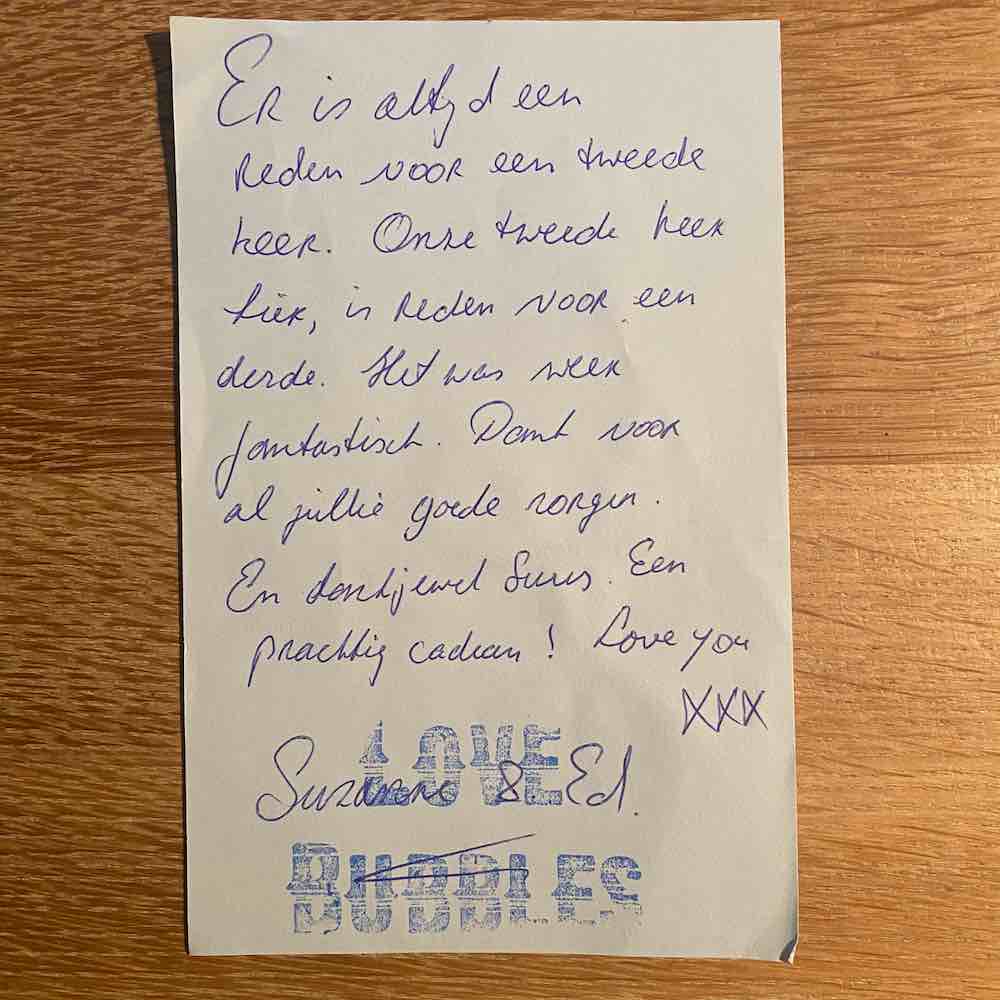 Er is altijd een
reden voor een tweede
keer. Onze tweede keer
hier, is reden voor een
derde. Het was weer
fantastisch. Dank voor
al jullie goede zorgen.
En dankjewel Suus. Een
prachtig cadeau! Love you
XXX
LOVE
Suzanne & Ed.
BUBBLES